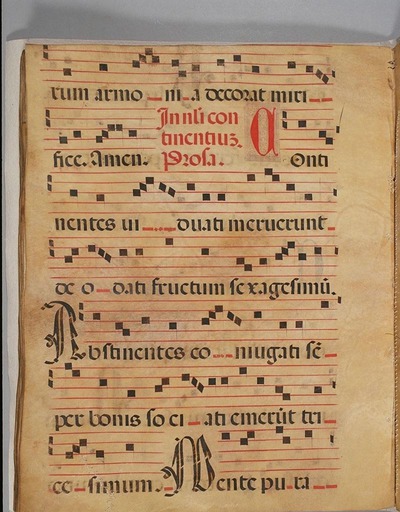 rum armo _ ni _ a decorat miri _
In con
tinentiuz.
fice. Amen. Prosa. C Onti
nentes ui _ duati meruerunt _
de o _ dati fructum sexagesimū.
Abstinentes co _ niugati sē _
per bonis so ci _ ati emerūt tri _
ce _ simum. Mente pu _ ra _